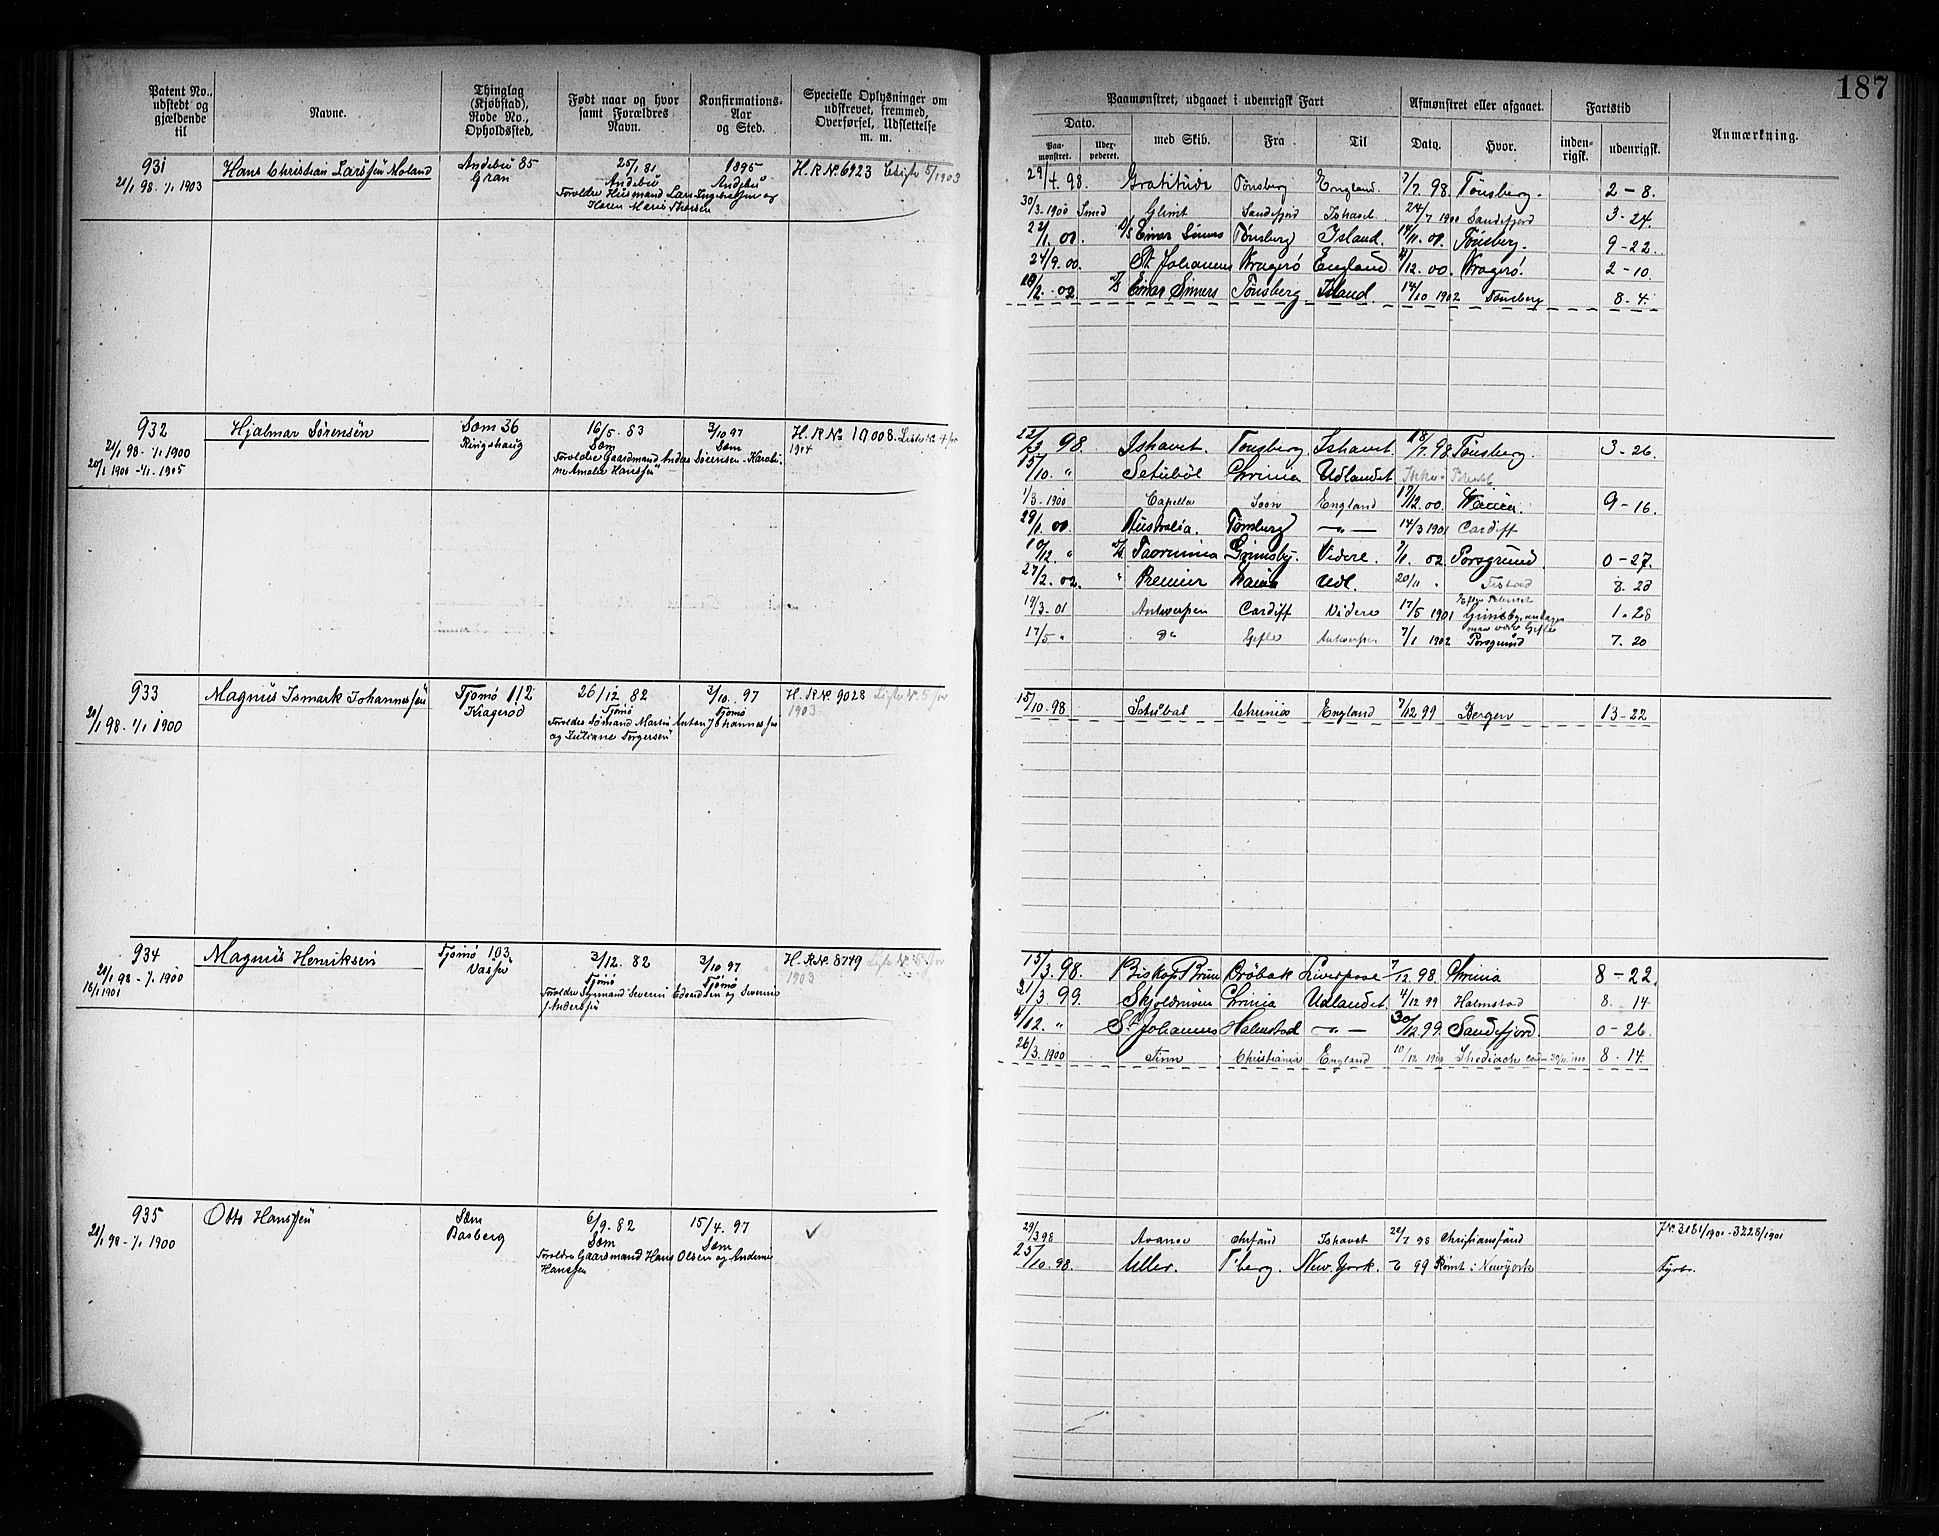 187
Patent No., udstedt og gjældende til
Navne.
Thinglag (Kjøbstad), Rode No., Opholdssted.
Født naar og hvor samt Forældres Navn.
Konfirmations- Aar og Sted.
Specielle Oplysninger om udskrevet, fremmed, Overførsel, Udslettelse m. m.
Paamønstret, udgaaet i udenrigsk Fart
Afmønstret eller afgaaet.
Fartstid
Anmærkning.
Dato.
med Skib.
Fra
Til
Dato.
Hvor.
inden- rigsk.
udenrigsk.
Paa- mønstret.
Udex- pederet.
931
21/1 98 - 1/1 1903
Hans Christian Larssen Moland
Andebu 85
Gran
25/1 81
Andebu
Forældre Husmand Lars Ingebretsen og
Karen Marie Thorsen
1895
Andebu
H. R No 6923
5/1903
29/4. 98. Gratitude Tønsberg England 7/7. 98. Tønsberg. 2 - 8.
30/3. 1900 Glimt Sandefjord Ishavet 24/7 1900 Sandefjord 3 - 24.
22/1. 00. Einar Simers Tønsberg Island. 14/11. 00. Tønsberg. 9 - 22.
24/9. 00. St. Johannes Kragerø England 4/12. 00. Kragerø. 2 - 10.
10/2. 02. Einar Simers Tønsberg Island. 14/10 1902 Tønsberg 8 - 4.
932
21/1 98 - 1/1 1900
20/1 1900 - 1/1 1905
Hjalmar Sørensen
Sem 36
Ringshaug
16/5. 83
Sem
Forældre Gaardmand Anders Sørensen - Karoli-
ne Amalie Hanssen
3/10 97
Sem
H. R No 19008.
1904
22/3 98. Ishavet. Tønsberg Ishavet 18/7. 98. Tønsberg. 3 - 26.
15/10. " Setubal Chrinia Udlandet
1/3 - 1900 Capella Soon England 17/12. 00. 9 - 16.
29/1. 00. Australia. Tønsberg — " — 14/3 1901 Cardiff
10/12. " Taormina Grimsby. Videre. 7/1. 02 Porsgrund 0 - 27.
27/2. 02. " Premier Udl. 20/11 " 8 - 23
19/3 - 01 Antwerpen Cardiff Videre 17/5 1901 Grimsby 1 - 28
17/5 " Do Gefle Antwerpen 7/1 1902 Porsgrund 7. 20
933
21/1 98. - 1/1 1900
Magnus Ismark Johannessen
Tjømø 112
Kragerød
26/12 82
Tjømø
Forældre Sømand Martin Anton Johannessen
og Juliane Torgersen
3/10. 97
Tjømø
H. R No. 9028
1903
15/10. 98 Setubal Chrinia England 7/12 99 Bergen 13 - 22
934
21/1 98 - 1/1. 1900
16/1 1901
Magnus Henriksen
Tjømø 103
Vasser
3/12. 82
Tjømø
Forældre Sømand Severin Edvardsen og Severine
f. Anderssen
3/10. 97
Tjømø
H. R No. 8749
1903
15/3. 98. Biskop Brun Drøbak Liverpool 7/12. 98. Chrinia 8 - 22.
21/3 99. Skjoldmøen Chrinia Udlandet 4/12 99 Halmstad 8. 14
4/12. " St Johannes Halmstad — " — 30/12. 99. Sandefjord. 0 - 26.
26/3. 1900 Finn Christiania England 10/12 1900 Shediach 8 - 14.
935
21/1 98 - 1/1 1900
Otto Hanssen
Sem
Basberg
6/9. 82
Sem
Forældre Gaardmand Hans Olsen og Andrine
Hanssen
15/4. 97
Sem
✓
29/3 98 Avance Chrsand Ishavet 22/7 98 Christianssand
25/10. 98. Uller. T'berg. New York. 99 Rømt i New York
J No. 3161/1901 - 3228/1901
Fyrbr.